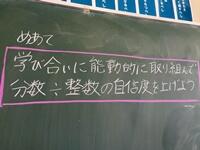 めあて
学び合いに能動的に取り組んで
分数÷整数の自信度を上げよう